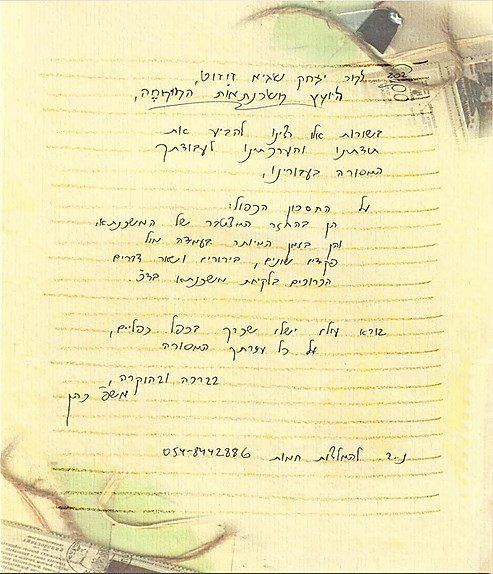 לכב' יצחק שגיא זוזוט,
ליועץ משכנתאות המומחה,
בשורות אלו רצינו להביע את
תודתנו והערכתינו לעבודתך
המסורה בעבורינו,
על החסכון הכפול:
הן בהחזר המצטבר של המשכנתא,
והן בזמן המיותר בעמדה מול
פקידים שונים, בירורים ושאר דברים
הכרוכים בלקיחת משכנתא בד"כ.
בורא עולם ישלם שכרך בכפל כפליים,
על כל עזרתך המסורה
בברכה ובהוקרה,
משפ' כהן
נ.ב. להמלצות חמות 054-8442886